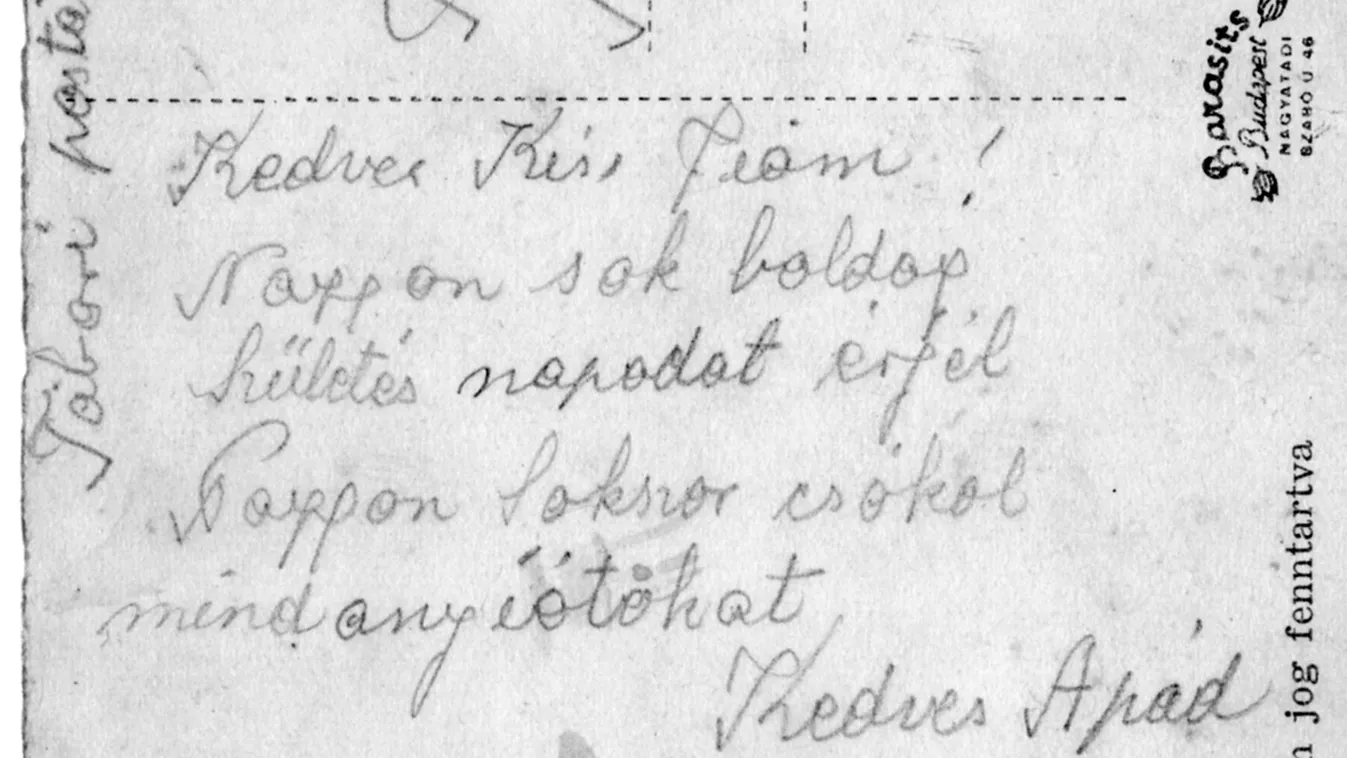 Tábori posta
Kedves Kiss fiam!
Nagyon sok boldog
születés napodat érjél
Nagyon sokszor csókol
mindanyiótokat
Kedves Apád
Barasits
Budapest
NAGYATÁDI
SZABÓ U 46
jog fenntartva